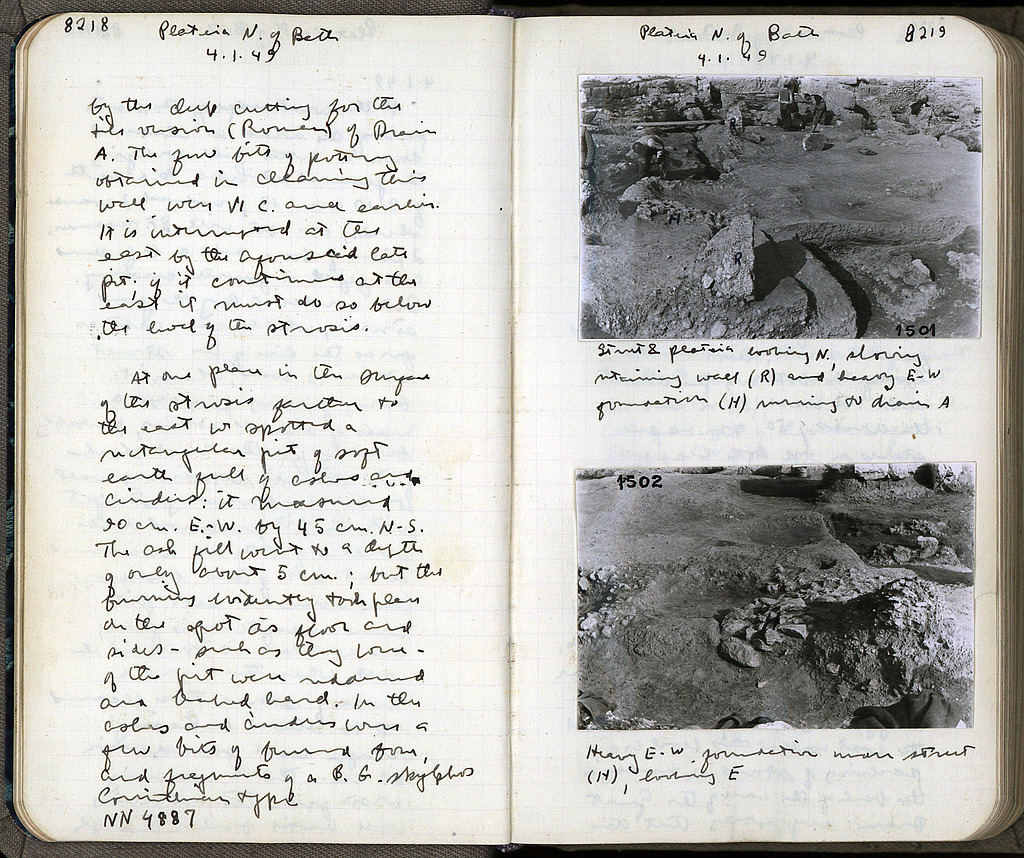 8218
Plateia N. of Bath
4.1.49
by the deep cutting for the
tile version (Roman) of Drain
A. The few bits of pottery
obtained in cleaning this
wall were VI C. and earlier.
It is interrupted at the
east by the aforesaid late
pit. If it continues at the
east it must do so below
the level of the strosis.
At one place in the surface
of the strosis farther to
the east we spotted a
rectangular pit of soft
earth full of ashes and
cinders: it measured
90 cm. E.-W. by 45 cm. N-S.
The ash fill went to a depth
of only about 5 cm.; but the
burning evidently took place
on the spot as floor and
sides - such as they were -
of the pit were reddened
and baked hard. In the
ashes and cinders were a
few bits of burned bone,
and fragments of a B.G. skyphos
Corinthian type
NN 4887
Plateia N. of Bath
8219
4.1.49
H
R
1501
Street & plateia looking N, showing
retaining wall (R) and heavy E-W
foundation (H) running to drain A
1502
Heavy E-W foundation near street
(H), looking E